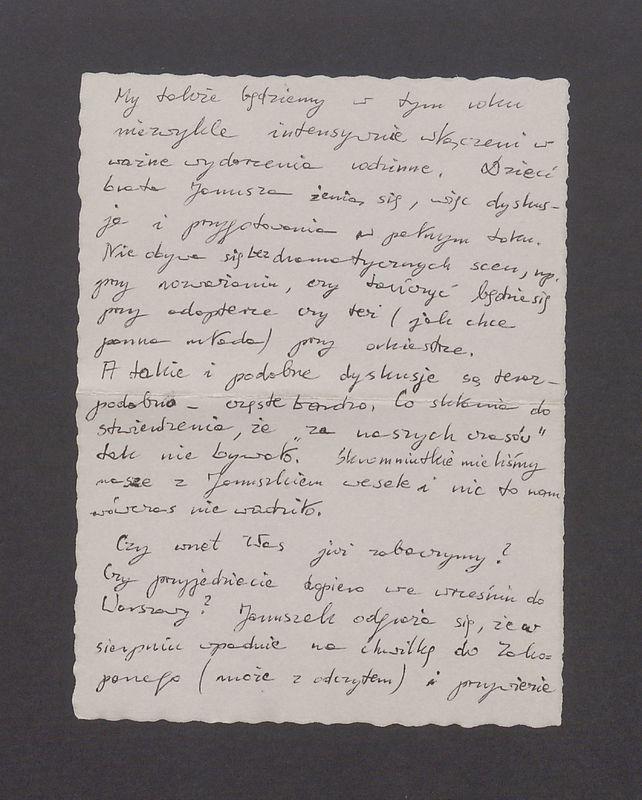 My także będziemy w tym roku
niezwykle intensywnie włączeni w
ważne wydarzenia rodzinne. Dzieci
brata Janusza żenią się, więc dyskus-
je i przygotowania w pełnym toku.
Nie obywa się bez dramatycznych scen, np.
przy rozważaniu, czy tańczyć będzie się
przy adapterze czy też (jak chce
panna młoda) przy orkiestrze.
A takie i podobne dyskusje są teraz -
podobno - częste bardzo. Co skłania do
stwierdzenia, że "za naszych czasów"
tak nie bywało. Skromniutkie mieliśmy
nasze z Januszkiem wesele i nic to nam
wówczas nie wadziło.
Czy wnet Was już zobaczymy?
Czy przyjedziecie dopiero we wrześniu do
Warszawy? Januszek odgraża się, że w
sierpniu wpadnie na chwilkę do Zako-
panego (może z odczytem) i przywiezie